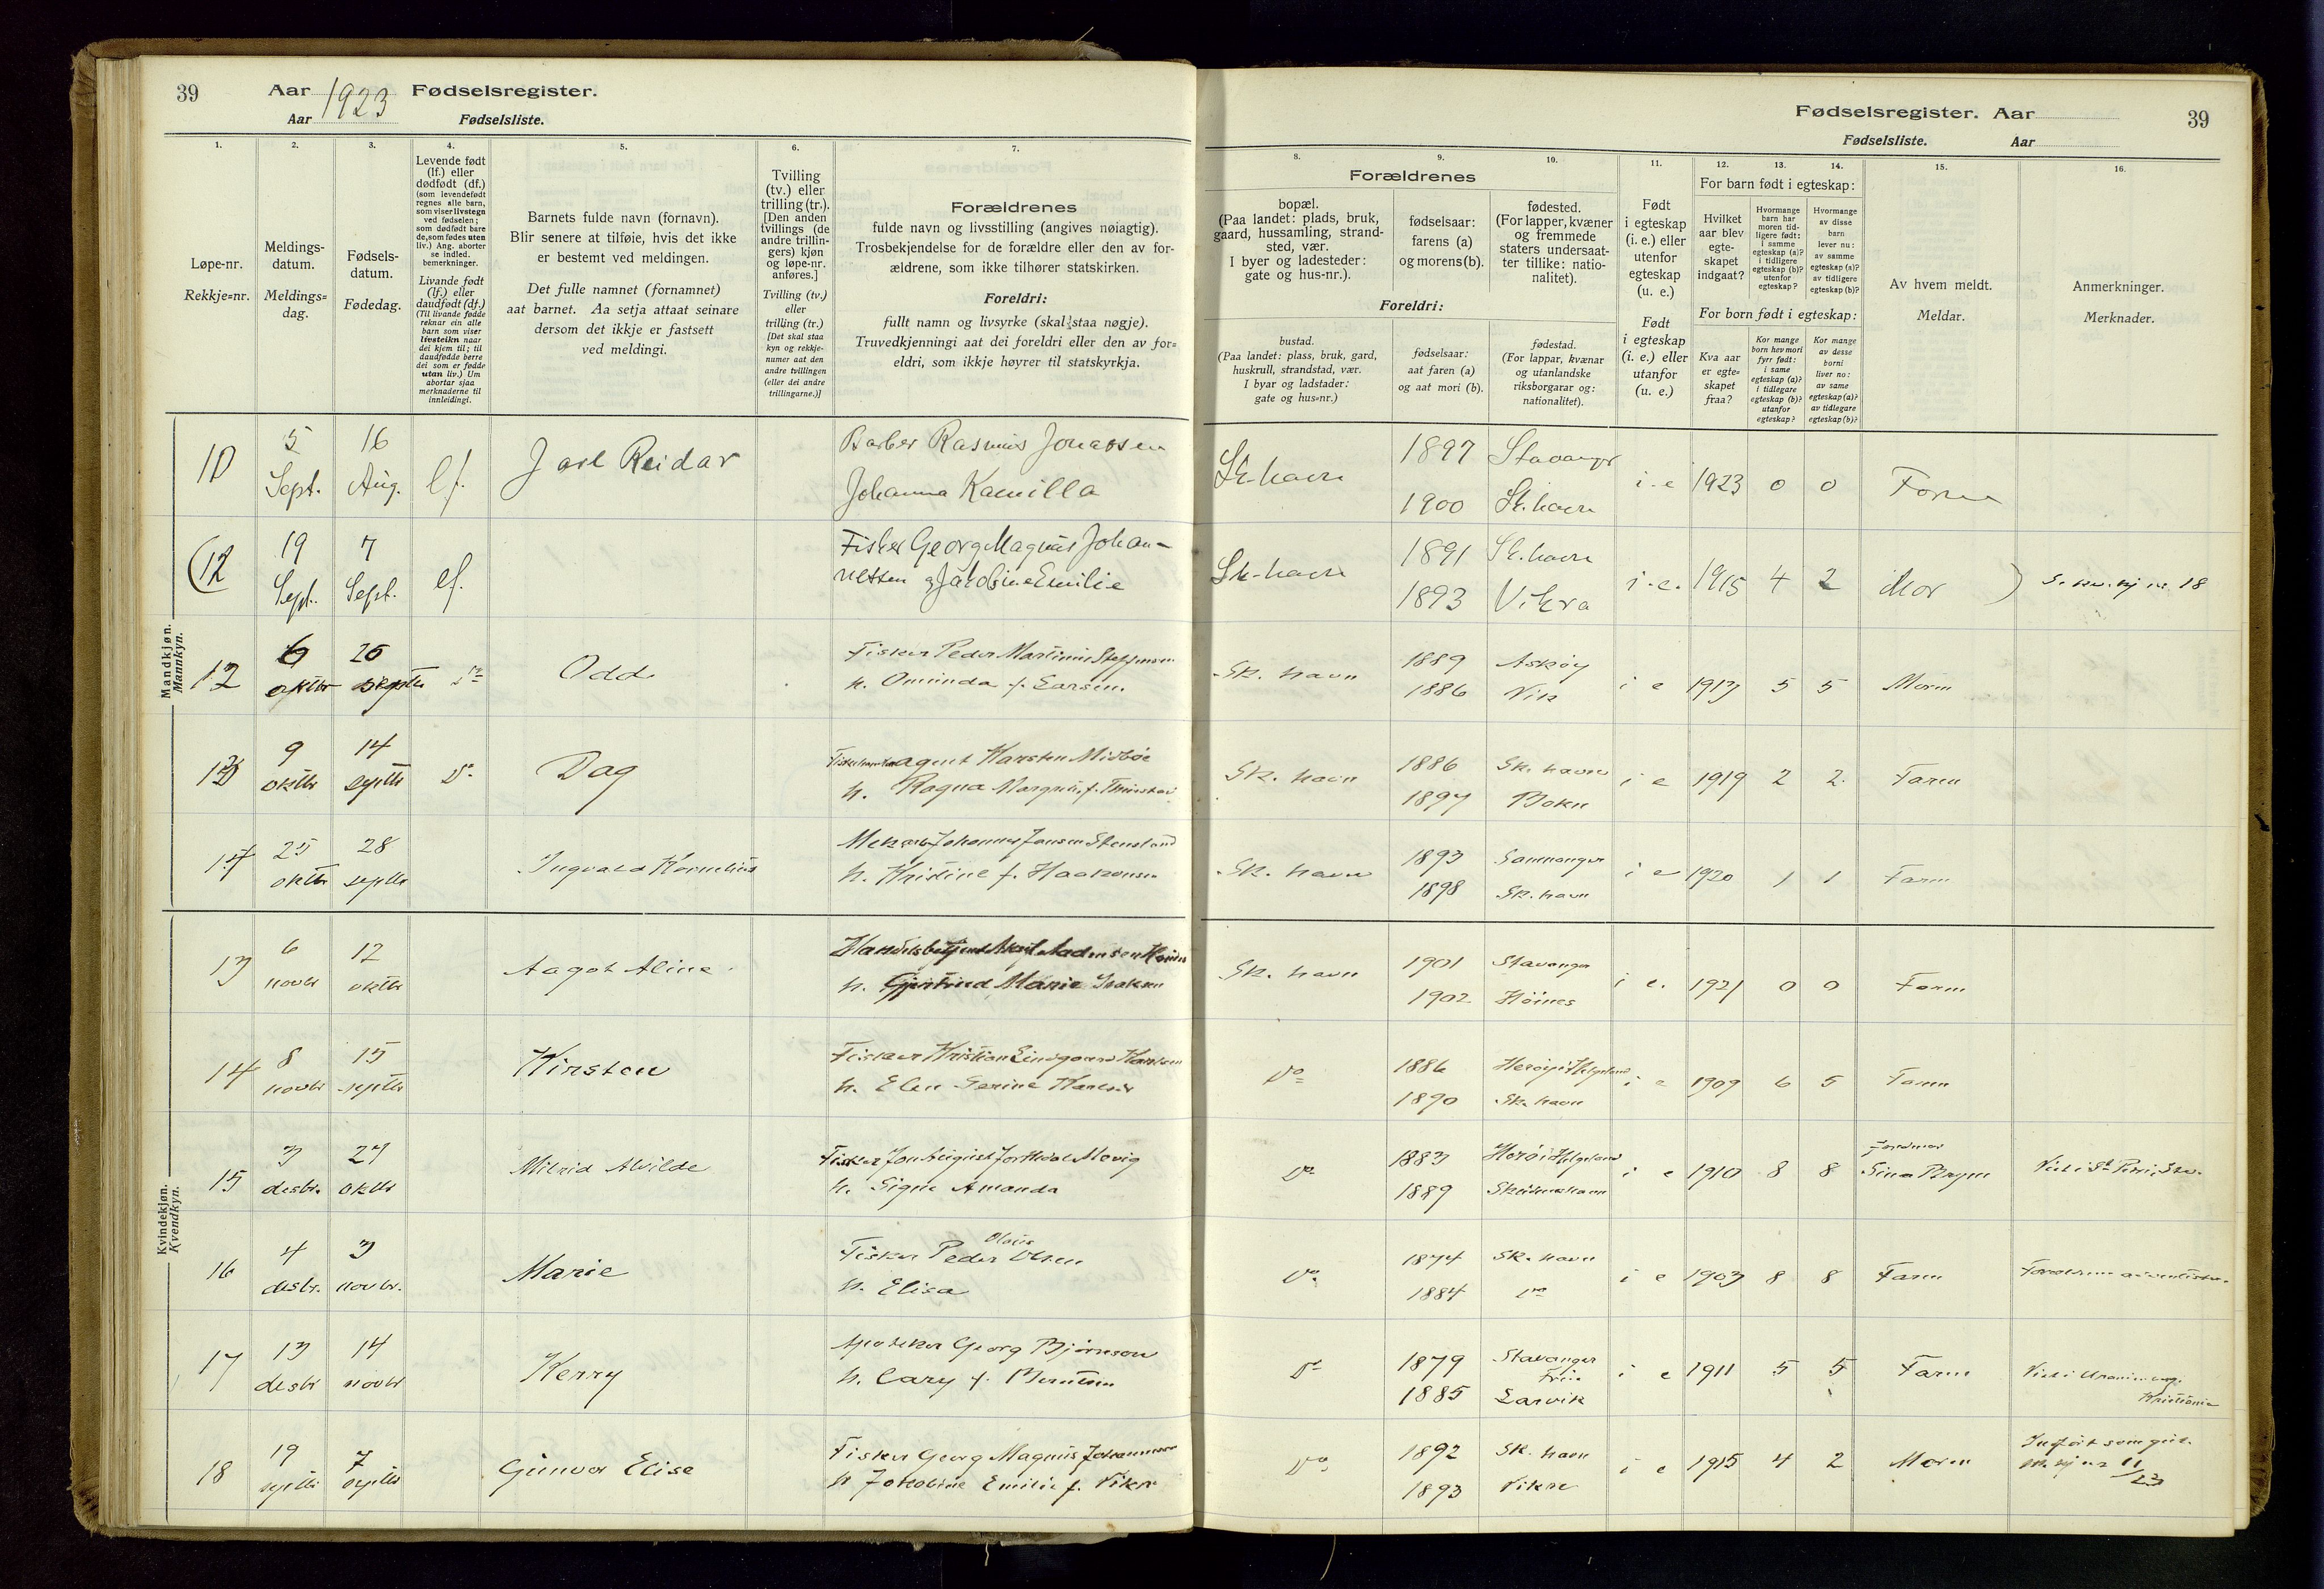 39
Aar 1923 Fødselsregister.
Aar Fødselsliste.
Fødselsregister. Aar
39
Fødselsliste. Aar
1.
Løpe-nr.
Rekkje=nr.
2.
Meldings-
datum.
Meldings=
dag.
3.
Fødsels-
datum.
Fødedag.
4.
Levende født
(lf.) eller
dødfødt (df.)
(som levendefødt
regnes alle barn,
som viser livstegn
ved fødselen;
som dødfødt bare
de, som fødes uten
liv.) Ang. aborter
se indled.
bemerkninger.
Livande født
(lf.) eller
daudfødt (df.)
(Til livande fødde
reknar ein alle
barn som viser
livsteikn naar
dei kjem til; til
daudfødde berre
dei som er fødde
utan liv.) Um
abortar sjaa
merknaderne til
innleidingi.
5.
Barnets fulde navn (fornavn).
Blir senere at tilføie, hvis det ikke
er bestemt ved meldingen.
Det fulle namnet (fornamnet)
aat barnet. Aa setja attaat seinare
dersom det ikkje er fastsett
ved meldingi.
6.
Tvilling
(tv.) eller
trilling (tr.).
[Den anden
tvillings (de
andre trillin-
gers) kjøn
og løpe-nr.
anføres.]
Tvilling (tv.)
eller
trilling (tr.)
[Det skal staa
kyn og rekkje-
numer aat den
andre tvillingen
(eller dei andre
trillingarne.)]
7.
Forældrenes
fulde navn og livsstilling (angives nøiagtig).
Trosbekjendelse for de forældre eller den av for-
ældrene, som ikke tilhører statskirken.
Foreldri:
fullt namn og livsyrke (skal staa nøgje).
Truvedkjenningi aat dei foreldri eller den av for=
eldri, som ikkje høyrer til statskyrkja.
Forældrenes
8.
bopæl.
(Paa landet: plads, bruk,
gaard, hussamling, strand-
sted, vær.
I byer og ladesteder:
gate og hus-nr.).
9.
fødselsaar:
farens (a)
og morens (b).
10.
fødested.
(For lapper, kvæner
og fremmede
staters undersaat-
ter tillike: natio-
nalitet).
Foreldri:
bustad.
(Paa landet: plass, bruk, gard,
huskrull, strandstad, vær.
I byar og ladstader:
gate og hus=nr.)
fødselsaar:
aat faren (a)
og aat mori (b).
fødestad.
(For lappar, kvænar
og utanlandske
riksborgarar og:
nationalitet).
11.
Født
i egteskap
(i. e.) eller
utenfor
egteskap
(u. e.)
Født
i egteskap
(i. e.) eller
utanfor
(u. e.)
For barn født i egteskap:
12.
Hvilket
aar blev
egte-
skapet
indgaat?
13.
Hvormange
barn har
moren tid-
ligere født:
i samme
egteskap (a)?
i tidligere
egteskap (b)?
utenfor
egteskap?
14.
Hvormange
av disse
barn
lever nu:
av samme
egteskap (a)?
av tidligere
egteskap (b)?
For born født i egteskap:
Kva aar
er egte=
skapet
fraa?
Kor mange
born hev mori
fyrr født:
i same
egteskap (a)?
i tidlegare
egteskap (b)?
utanfor
egteskap?
Kor mange
av desse
borni
liver no:
av same
egteskap (a)?
av tidlegare
egteskap (b)?
15.
Av hvem meldt.
Meldar.
16.
Anmerkninger.
Merknader.
Mandkjøn.
Mannkyn.
10 5 Sept. 16 Aug. lf. Jarl Reidar Barber Rasmus Jonassen
Johanna Kamilla
Sk.havn 1897 Stavanger i. e 1923 0 0 Faren
1900 Sk.havn
(12 19 Sept. 7 Sept. lf. Fisker Georg Magnus Johan-
nessen og Jakobine Emilie
Sk.havn 1891 Sk.havn i. e. 1915 4 2 Mor )
1893 Vikra
12 6 oktbr 26 septbr Do Odd Fisker Peder Martinius Steffensen
h. Omunda f. Larsen.
Sk. havn 1889 Askøy i e 1913 5 5 Moren
1886 Vik
13 9 oktbr 14 septbr Do Dag agent Karsten Midbøe
h. Ragna
Sk. havn 1886 Sk. havn i e 1919 2 2. Faren
1897 Bokn
14 25 oktbr 28 septbr Ingvald Kornelius Johannes Jansen Stensland
h. Kristine f. Haakonsen
Sk. havn 1893 Samnanger i e 1920 1 1 Faren
1898 Sk. havn
Kvindekjøn.
Kvendkyn.
13 6 novbr 12 oktbr Aagot Aline Handelsbetjent
h. Gjertrud Marie Isaksen
Sk. havn 1901 Stavanger i e. 1921 0 0 Faren
1902 Høines
14 8 novbr 15 septbr Kirsten Fisker Kristian Lindgaard Karlsen
h. Elen Serine
Do 1886 Herøy i Helgeland i e 1909 6 5 Faren
1890 Sk. havn
15 3 desbr. 27 oktbr Milrid Alvilde Fisker Jon August
h. Signe Amanda
Do 1883 Herøi Helgeland i e 1910 8 8 Jordmor Sina Bryne
1889 Skudeneshavn
16 4 desbr. 3 novbr. Marie Fisker Peder Olaus Olsen
h. Elisa
Do 1874 Sk. havn i e 1903 8 8 Faren Forældrene adventister.
1884 Do
17 13 desbr 14 novbr Kerry Apoteker Georg Bjørnson
h. Cary f. Berntsen
Do 1879 Stavanger i e 1911 5 5 Faren
1885 Larvik Kristiania
18 19 septbr 7 septbr Gunvor Elise Fisker Georg Magnus Johannessen
h Jakobine Emilie f. Vikre
Do 1892 Sk. havn i e 1915 4 2 Moren Indført som gut.
1893 Vikre